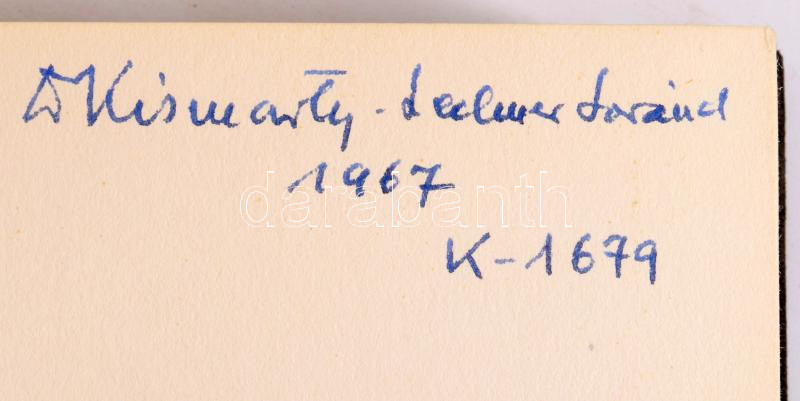 Dr Kismarty-Lechner Loránd
1967
darabanth
K-1679